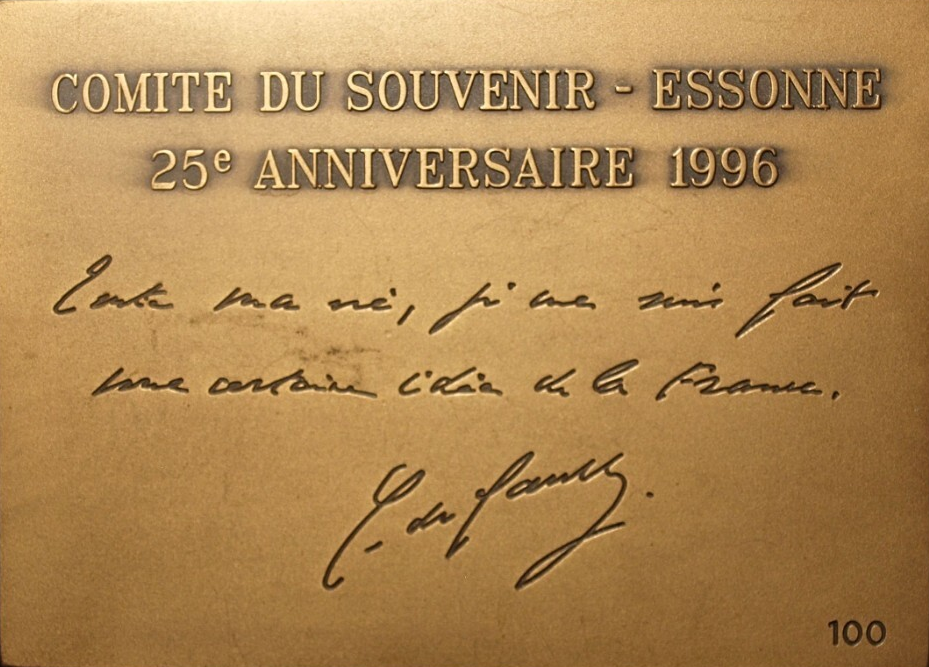 COMITE DU SOUVENIR - ESSONNE
25e ANNIVERSAIRE 1996
Toute ma vie, je me suis fait
une certaine idée de la France.
C. de Gaulle.
100